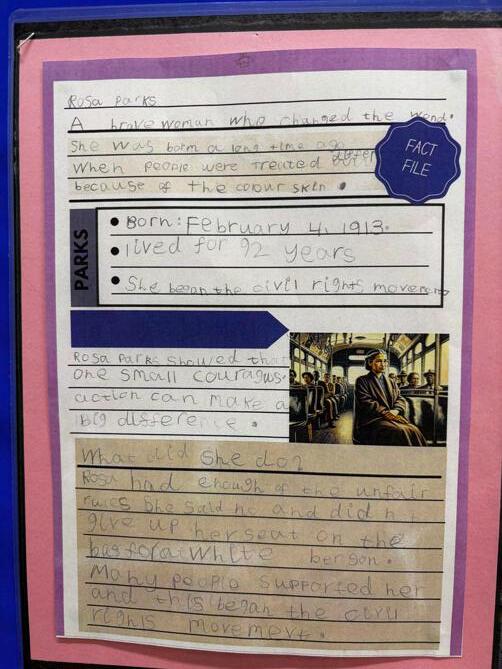 Rosa Parks
A brave woman who changed the word.
She was born a long time ago
When people were treated
because of the colour skin.
FACT
FILE
PARKS
Born: February 4, 1913.
lived for 92 years
She began the civil rights movement
Rosa Parks showed that
one small couragus
action can make a
big difference.
What did she do?
Rosa had enough of the unfair
rules she said no and didn't
give up her seat on the
bus for a white berson.
Many people supported her
and this began the civil
rights movement.